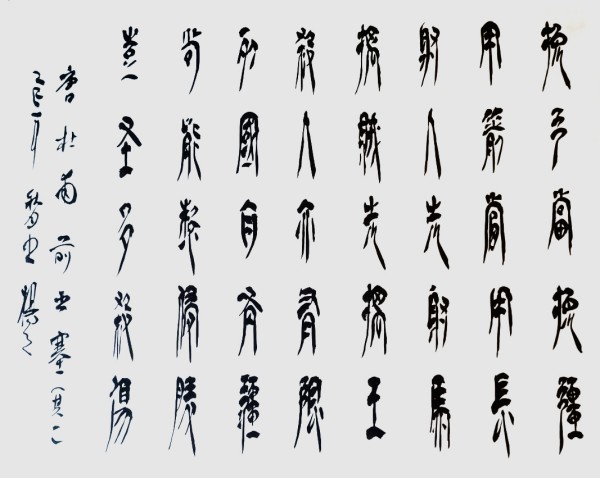 挽弓當挽彊
用箭當用長
射人先射馬
擒賊先擒王
殺人亦有限
列國自有疆
苟能制侵陵
豈在多殺傷
唐杜甫前出塞其
乙巳年 書